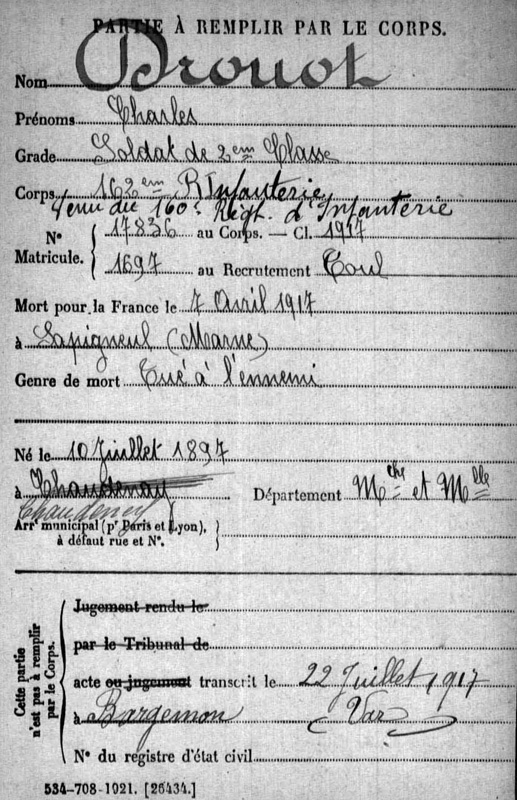 PARTIE À REMPLIR PAR LE CORPS.
Nom Drouot
Prénoms Charles
Grade Soldat de 2em Classe
Corps 162em R Infanterie
venu du 160e Régt. d'Infanterie
N° Matricule. { 17836 au Corps. — Cl. 1917
1697 au Recrutement Toul
Mort pour la France le 7 Avril 1917
à Sapigneul (Marne)
Genre de mort Tué à l'ennemi
Né le 10 Juillet 1897
à Chaudenay Département Mthe et Mlle
Chaudeney
Arrt municipal (pr Paris et Lyon), à défaut rue et N°. }
Cette partie n'est pas à remplir par le Corps. {
Jugement rendu le
par le Tribunal de
acte ou jugement transcrit le 22 Juillet 1917
à Bargemon (Var)
N° du registre d'état civil
534-708-1921. [26434.]